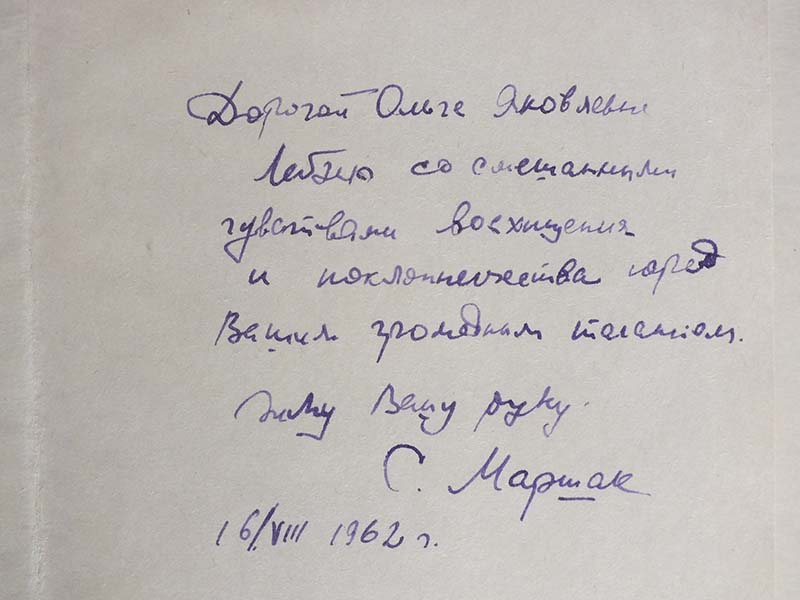 Дорогой Ольге Яковлевне
Лебзию со смешанными
чувствами восхищения
и поклонничества перед
Вашим громадным талантом.
Жму Вашу руку.
С. Маршак
16/VIII 1962 г.